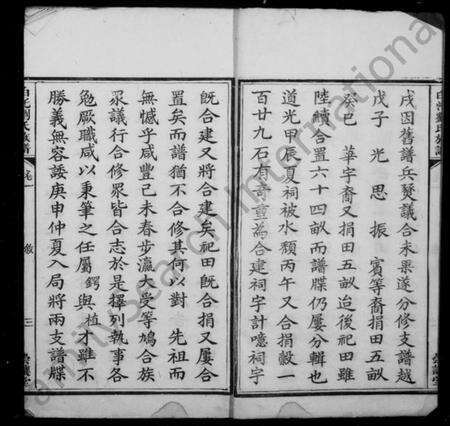 戌因舊譜兵燹議合未果遂分修支譜越
戊子 光 思 振 賓等裔捐田五畝
泰巳 華字裔又捐田五畝迨後祀田雖
陸續合置六十四畝而譜牒仍屢分輯也
道光甲辰夏祠被水頹丙午又合捐穀一
百廿九石有奇重為合建祠宇計噫祠宇
既合建又將合建矣祀田既合捐又屢合
置矣而譜猶不合修其何以對 先祖而
無憾乎咸豐己未春步瀛大受等鳩合族
眾議行合修眾皆合志於是擇列執事各
勉厥職咸以秉筆之任屬 鍔與植才雖不
勝義無容諉庚申仲夏入局將兩支譜牒
劉氏族譜
FamilySearch International